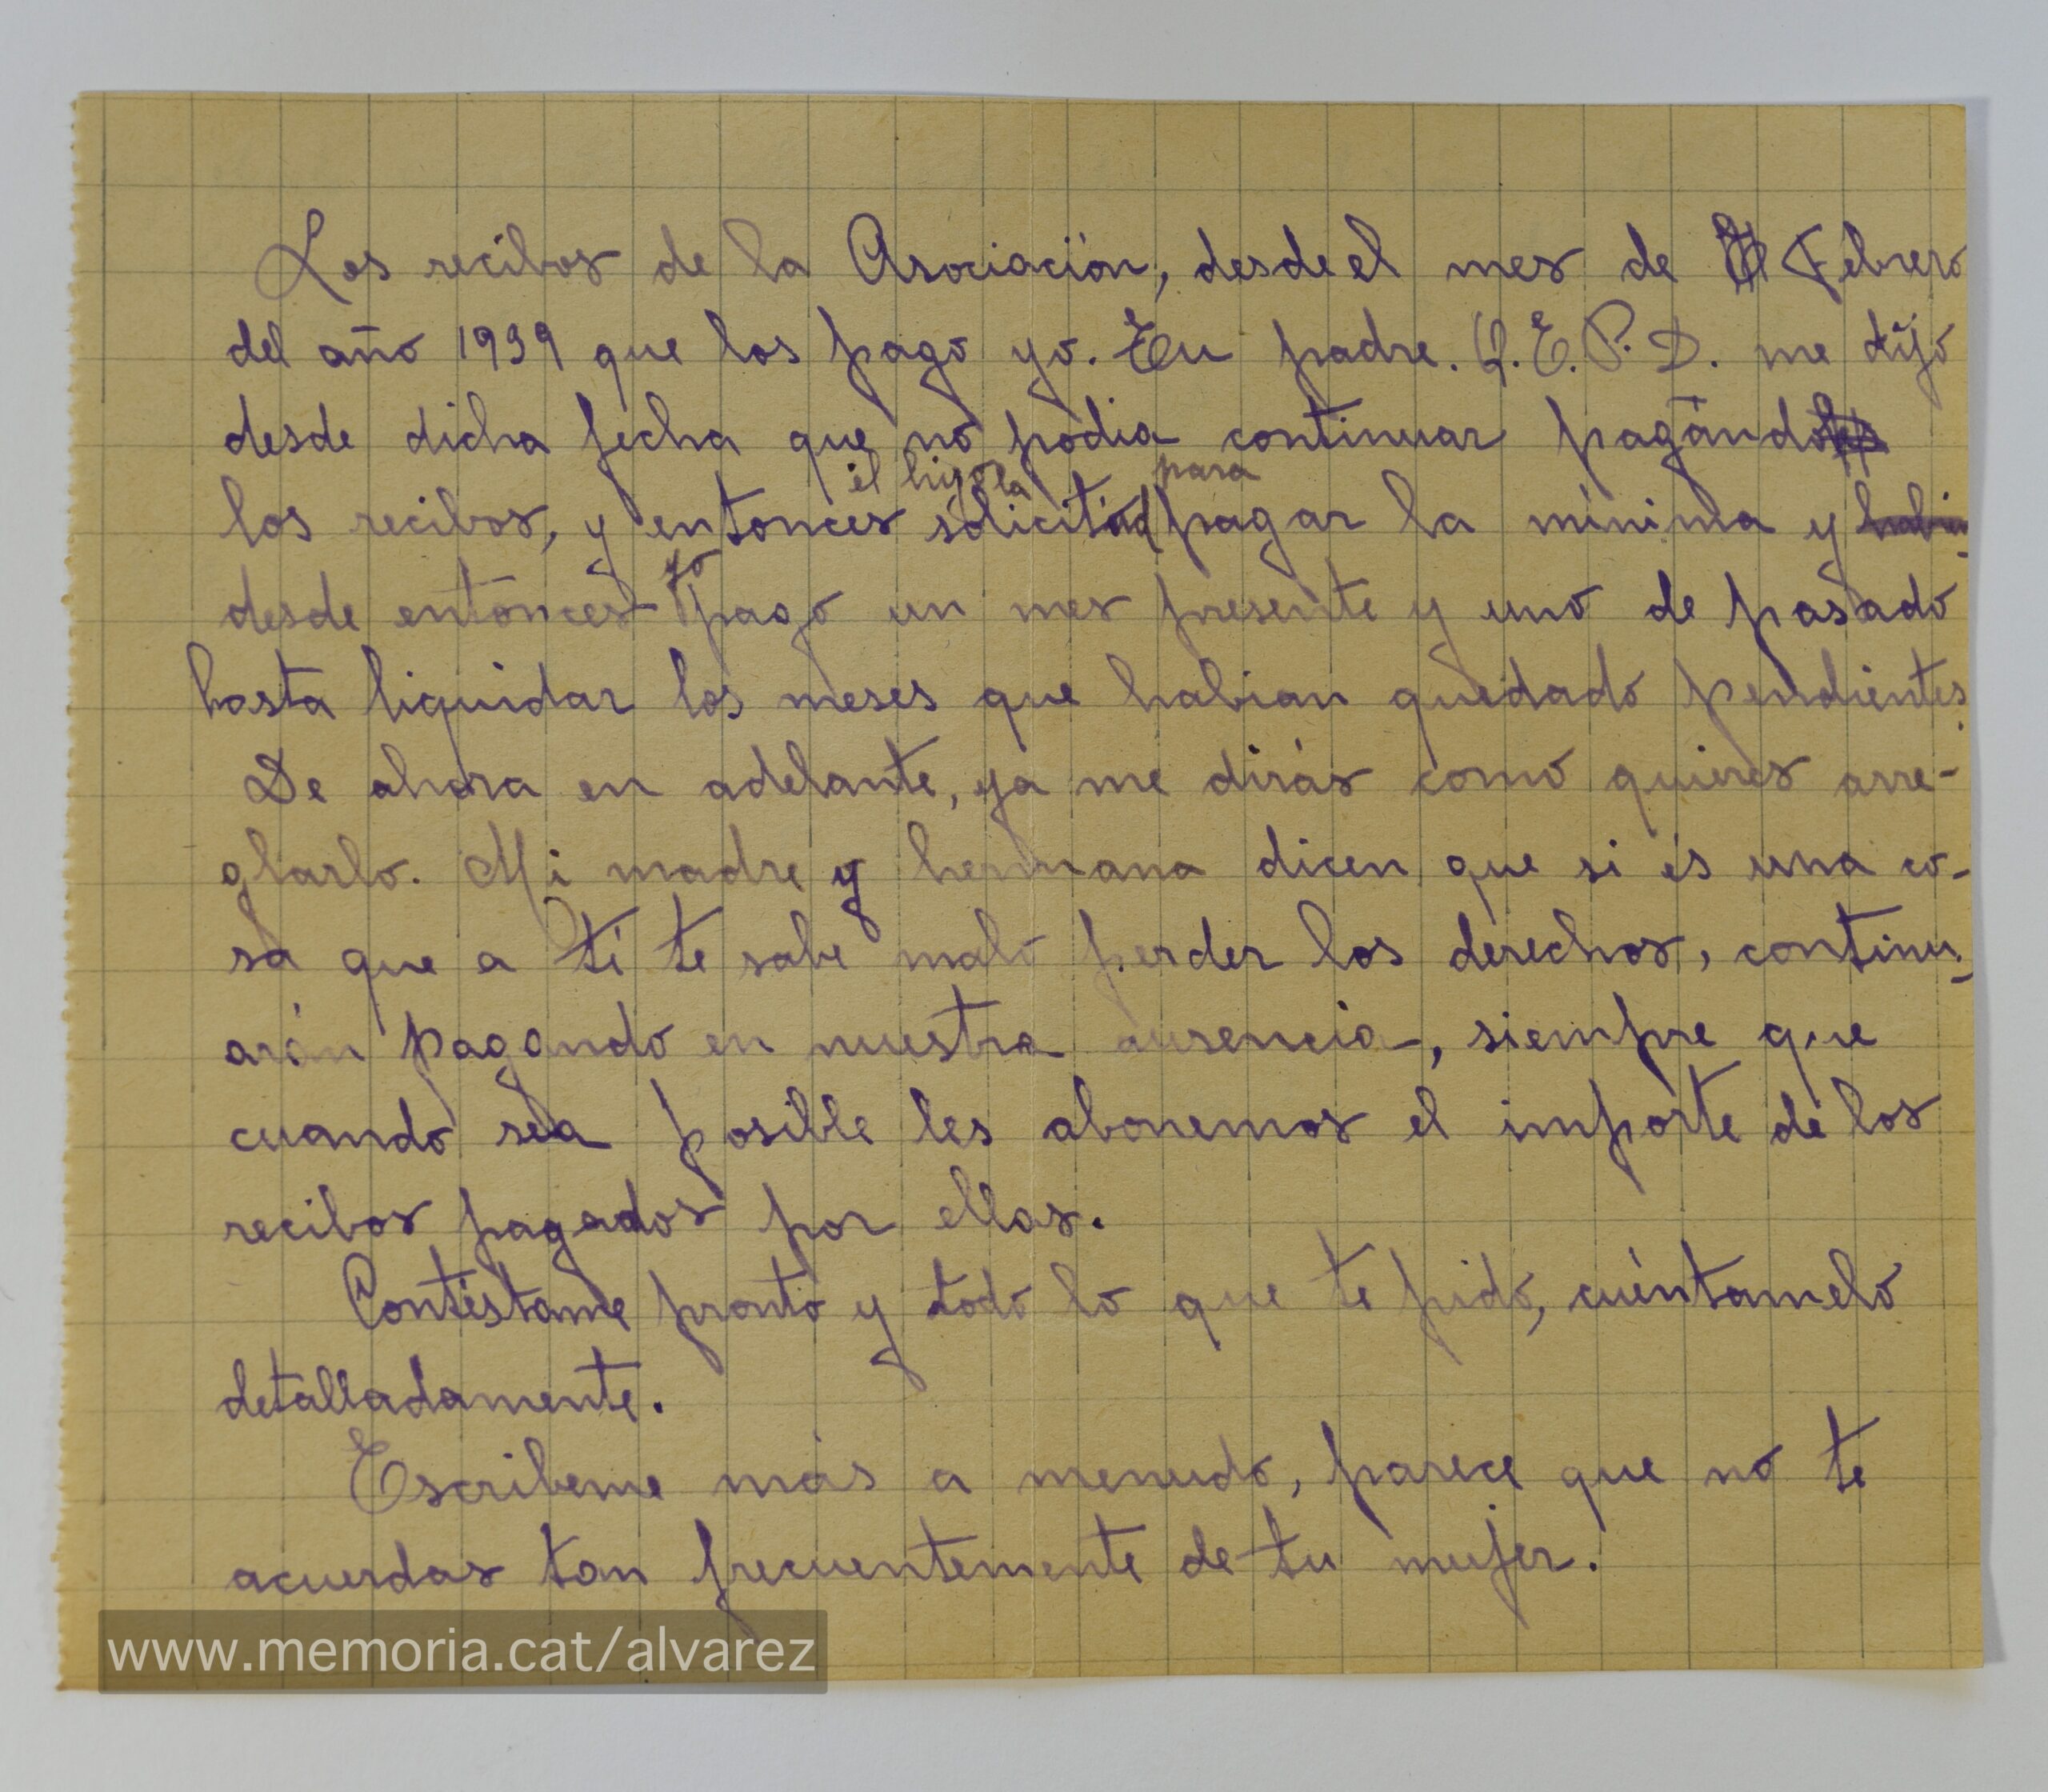 Los recibos de la Asociación, desde el mes de Febrero
del año 1939 que los pago yo. Tu padre. Q.E.P.D. me dijo
desde dicha fecha que no podia continuar pagándo
el hizo la para
los recibos, y entonces solicitud pagar la mínima y
yo
desde entonces pago un mes presente y uno de pasado
hasta liquidar los meses que habian quedado pendientes.
De ahora en adelante, ya me dirás como quieres arre-
glarlo. Mi madre y hermana dicen que si és una co-
sa que a tí te sabe malo perder los derechos, continu-
arán pagando en nuestra ausencia, siempre que
cuando sea posible les abonemos el importe de los
recibos pagados por ellas.
Contéstame pronto y todo lo que te pido, cuéntamelo
detalladamente.
Escribeme más a menudo, parece que no te
acuerdas tan frecuentemente de tu mujer.
www.memoria.cat/alvarez